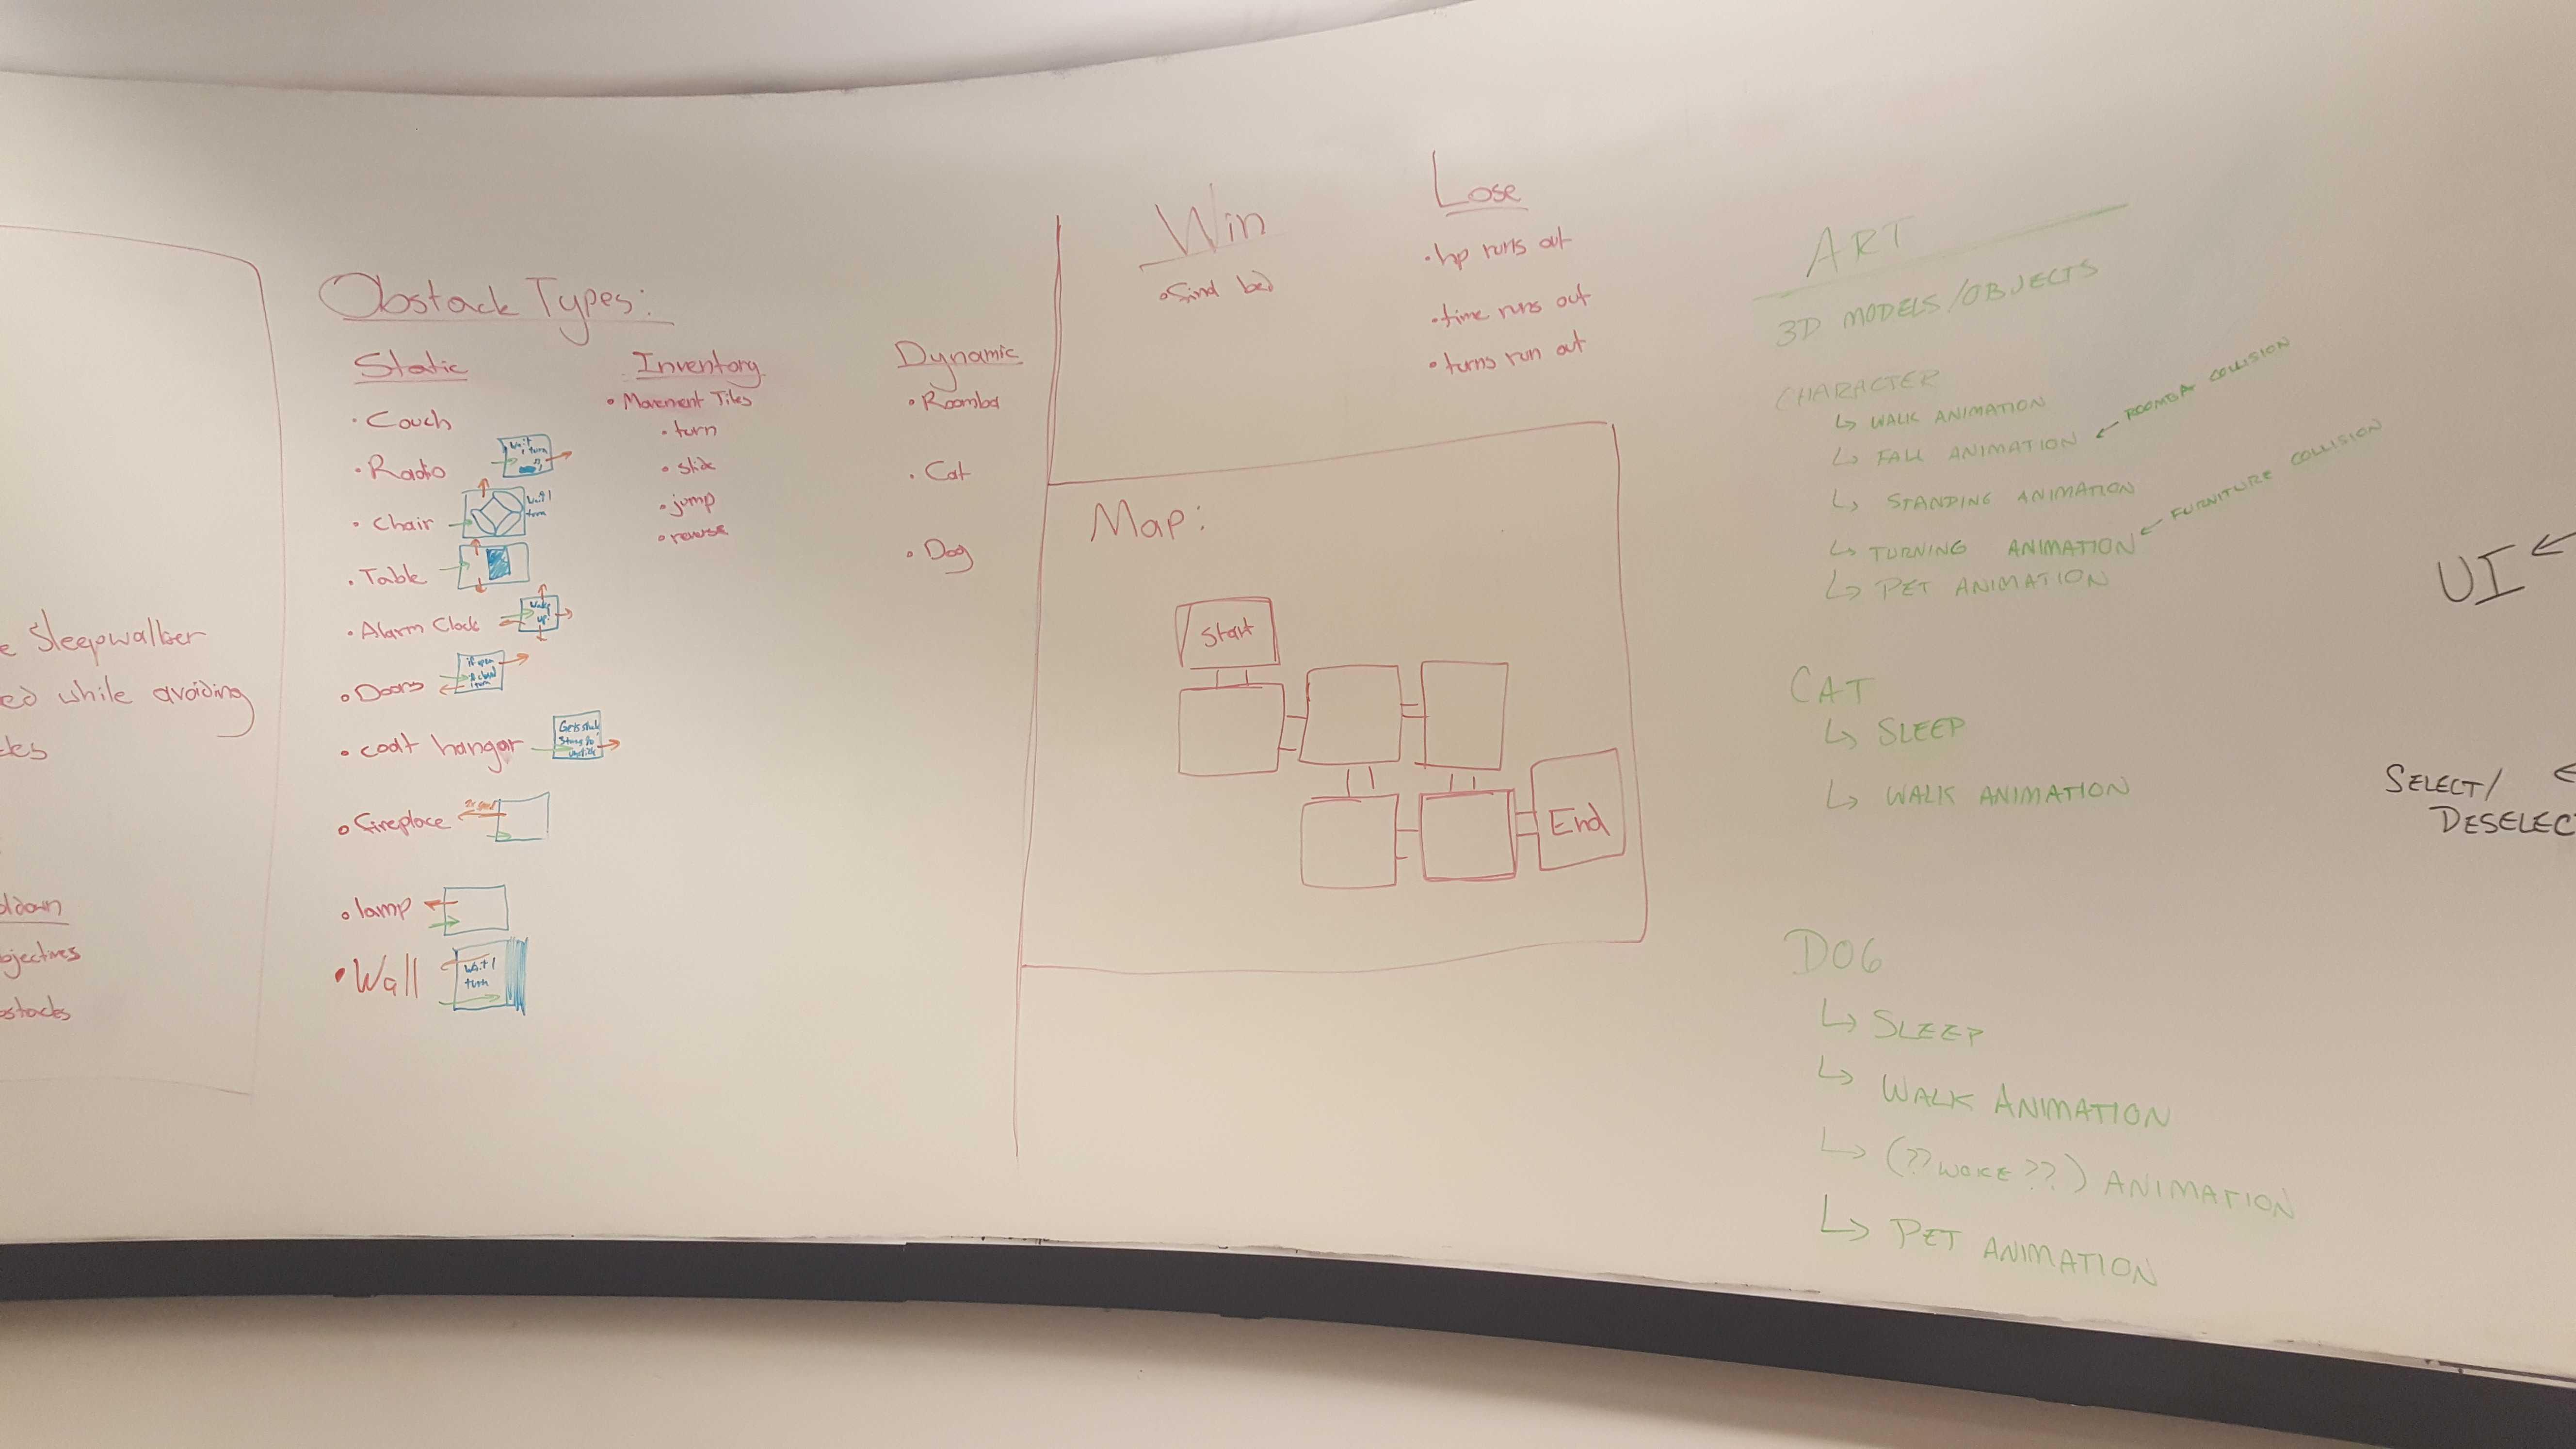 e Sleepwalker
ed while avoiding
cles
ldown
bjectives
bstacles
Obstacle Types:
Static
· Couch
· Radio
Wait
1 turn
· Chair
Wait 1
turn
· Table
· Alarm Clock
Wake
up!
· Doors
if open
· coat hangar
Gets stuck
· fireplace
· lamp
· Wall
Wait 1
turn
Inventory
· Movement Tiles
· turn
· slide
· jump
· reverse
Dynamic
· Roomba
· Cat
· Dog
Win
· find bed
Lose
· hp runs out
· time runs out
· turns run out
Map:
Start
End
ART
3D MODELS/OBJECTS
CHARACTER
↳ WALK ANIMATION
↳ FALL ANIMATION ← ROOMBA COLLISION
↳ STANDING ANIMATION
↳ TURNING ANIMATION ← FURNITURE COLLISION
↳ PET ANIMATION
CAT
↳ SLEEP
↳ WALK ANIMATION
DOG
↳ SLEEP
↳ WALK ANIMATION
↳ (??WOKE??) ANIMATION
↳ PET ANIMATION
UI ←
SELECT/ ←
DESELEC